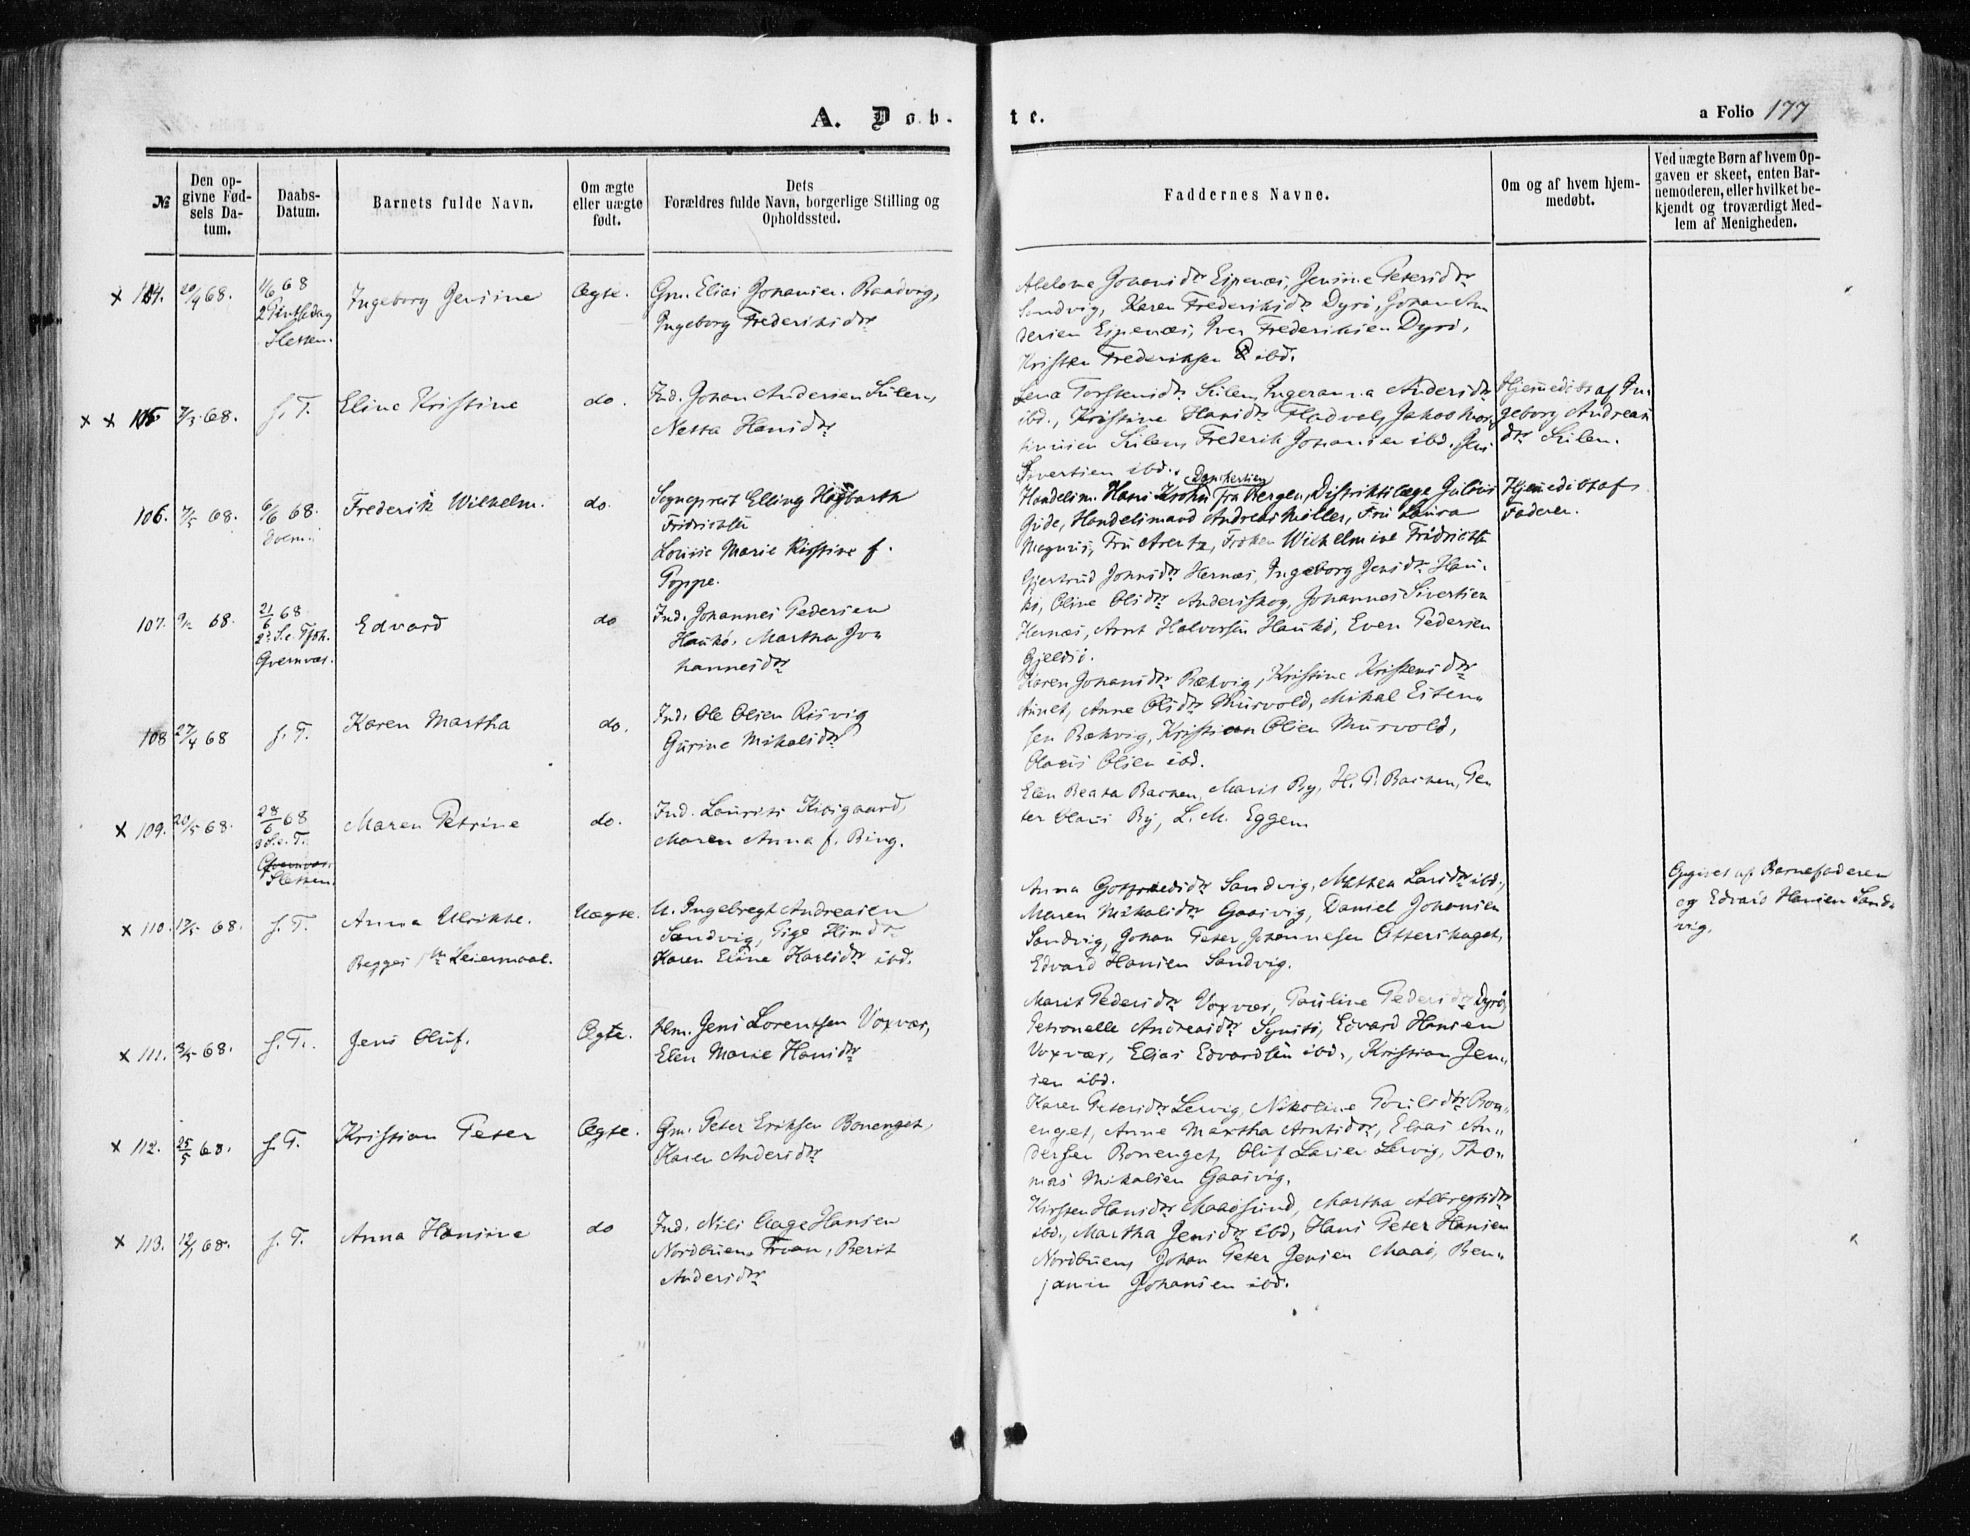 A. Døb-te.
a Folio 177
№
Den op-
givne Fød-
sels Da-
tum.
Daabs-
Datum.
Barnets fulde Navn.
Om ægte
eller uægte
født.
Dets
Forældres fulde Navn, borgerlige Stilling og
Opholdssted.
Faddernes Navne.
Om og af hvem hjem-
medøbt.
Ved uægte Børn af hvem Op-
gaven er skeet, enten Bar-
nemoderen, eller hvilket be-
kjendt og troværdigt Med-
lem af Menigheden.
x 104. 20/4 68.
1/6 68
2 Pintsedag
Sletten.
Ingeborg Jensine
Ægte.
Gm. Elias Johansen Baadvig,
Ingeborg Frederiksdtr
Johansdtr Espenæs, Jensine Petersdtr
Sandvig, Karen Frederiksdtr Dyrø, Johan An
dersen Espenæs, Iver Frederiksen Dyrø,
Kristen Frederiksen ibd.
x x 105 7/3 68.
s. T.
Eline Kristine
do.
Ind. Johan Andersen Sulen,
Netta Hansdtr
Lena Torstensdtr Sulen, Ingeranna Andersdtr
ibd., Kristine Hansdtr Fladval, Jakob
Sulen, Frederik Johansen ibd. Jens
Sivertsen ibd.
Hjemmedøbt af In-
geborg Andreas
dtr Sulen.
106. 7/5 68.
6/6 68.
Frederik Wilhelm.
do.
Sogneprest Elling Hagbarth
Fridrichsen
Louise Marie Kirstine f.
Poppe.
Danckertsen
Handelsm. Hans Krohn fra Bergen, Distriktslæge Julius
Gude, Handelsmand Andreas Møller, Fru Laura
Magnus, Fru Arentz, Frøken Wilhelmine Fridrichs
Hjemmedøbt af
Faderen.
107. 9/2 68.
21/6 68
2. S. e. Tref.
Qvernvas.
Edvard
do
Ind. Johannes Pedersen
Haukø. Martha Jo-
hannesdtr
Gjertrud Johnsdtr Hernæs, Ingeborg Jensdtr Hau-
kø, Oline Olsdtr Anderskog, Johannes Sivertsen
Hernæs, Arnt Halvorsen Haukø, Even Pedersen
Gjeldsø.
108 27/4 68
s. T.
Karen Martha
do.
Ind. Ole Olsen Risvig
Gurine Mikalsdtr
Karen Johansdtr Bækvig, Kristine Kristensdtr
Aunet, Anne Olsdtr Murvold, Mikal Esten-
sen Bækvig, Kristian Olsen Murvold,
Olaus Olsen ibd.
x 109. 20/5 68.
28/6 68
3 S. e. T.
Qvernvas.
Sletten.
Maren Petrine
do.
Ind. Laurits Kibsgaard,
Maren Anna f. Bing.
Elen Beata Backen, Maris By, H. P. Backen, Pe-
ter Olaus By, L. M. Eggen
x 110. 17/5 68.
s. T.
Anna Ulrikke.
Begges 1ste Leiermaal.
Uægte.
U. Ingebregt Andreasen
Sandvig, Pige
Karen Eline Karlsdtr ibd.
Anna Gotfriedsdtr Sandvig, Mathea Larsdtr ibd.,
Maren Mikalsdtr Gaasvig, Daniel Johansen
Sandvig, Johan Peter Johannesen Otterskaget,
Edvard Hansen Sandvig.
Opgivet af Barnefaderen
og Edvard Hansen Sand-
vig.
x 111. 3/5 68.
s. T.
Jens Oluf.
Ægte.
Hm. Jens Lorentsen Voxvær,
Elen Marie Hansdtr
Marit Pedersdtr Voxvær, Pauline Pedersdtr Dyrø,
Petronelle Andreasdtr Synitø, Edvard Hansen
Voxvær, Elias Edvardsen ibd., Kristian Jen-
sen ibd.
x 112. 25/5 68.
s. T.
Kristian Peter
Ægte.
Gm. Peter Eriksen Bonenget,
Karen Andersdtr
Karen Petersdtr Lervig, Nikoline Poulsdtr Bon-
enget, Anne Martha Arntsdtr, Elias An-
dersen Bonenget, Oluf Larsen Lervig, Tho-
mas Mikalsen Gaasvig.
x 113. 12/1 68.
s. T.
Anna Hansine
do
Ind. Nils Aage Hansen
Nordbuen, Froan, Berit
Andersdtr
Kirsten Hansdtr Maaøsund, Martha Albregtsdtr
ibd., Martha Jensdtr ibd, Hans Peter Hansen
Nordbuen, Johan Peter Jensen Maaø, Ben-
jamin Johansen ibd.